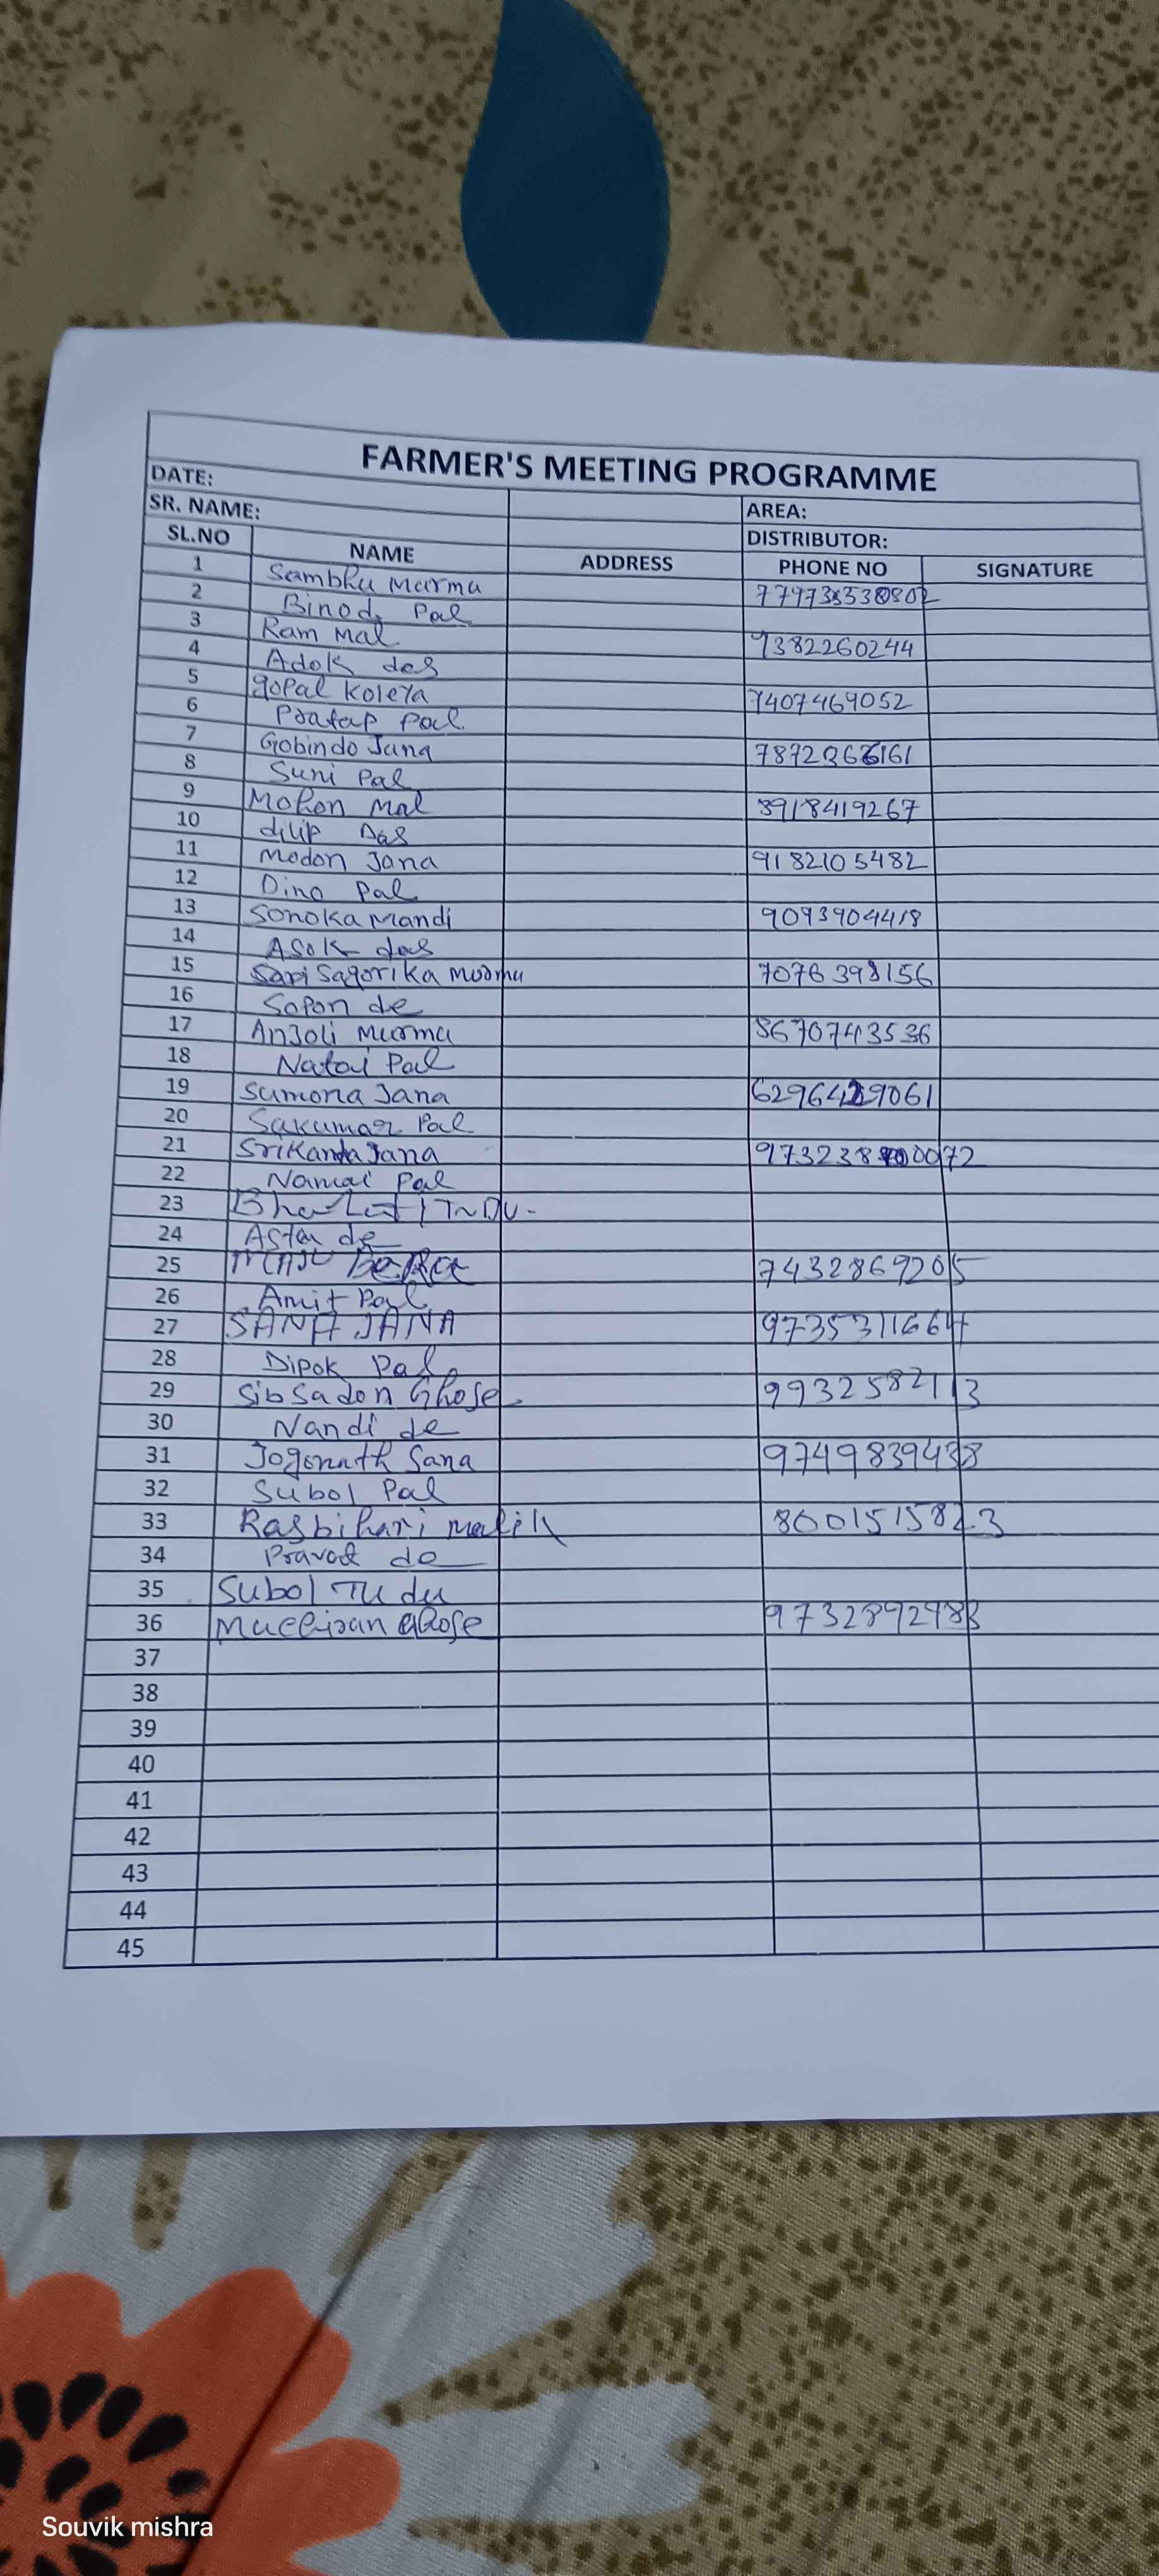 FARMER'S MEETING PROGRAMME
DATE:
SR. NAME: AREA:
DISTRIBUTOR:
SL.NO NAME ADDRESS PHONE NO SIGNATURE
1 Sambhu Murmu
2 Binod Pal
3 Ram Mal 9382260244
4 Adok das
5 gopal Koleya 7407469052
6 Pratap Pal
7 Gobindo Jana
8 Suni Pal
9 Mohon Mal 8918419267
10 dilip Das
11 Modon Jana 9182105482
12 Dino Pal
13 Sonoka Mandi 9093904418
14 Asok das
15 Sagorika Murmu 7076398156
16 Sopon de
17 Anjoli Murmu 8670743536
18 Natai Pal
19 Sumona Jana
20 Sukumar Pal
21 Srikanta Jana
22 Namai Pal
23
24 de
25 7432869205
26 Amit Pal
27 SANA JANA 9735311664
28 Dipok Pal
29 Sibsadon Ghose 9932582113
30 Nandi de
31 Jogonath Sana 9749839438
32 Subol Pal
33 Rasbihari malik 8001515823
34 de
35 Subol Tudu
36 Ghose 9732892983
37
38
39
40
41
42
43
44
45
Souvik mishra